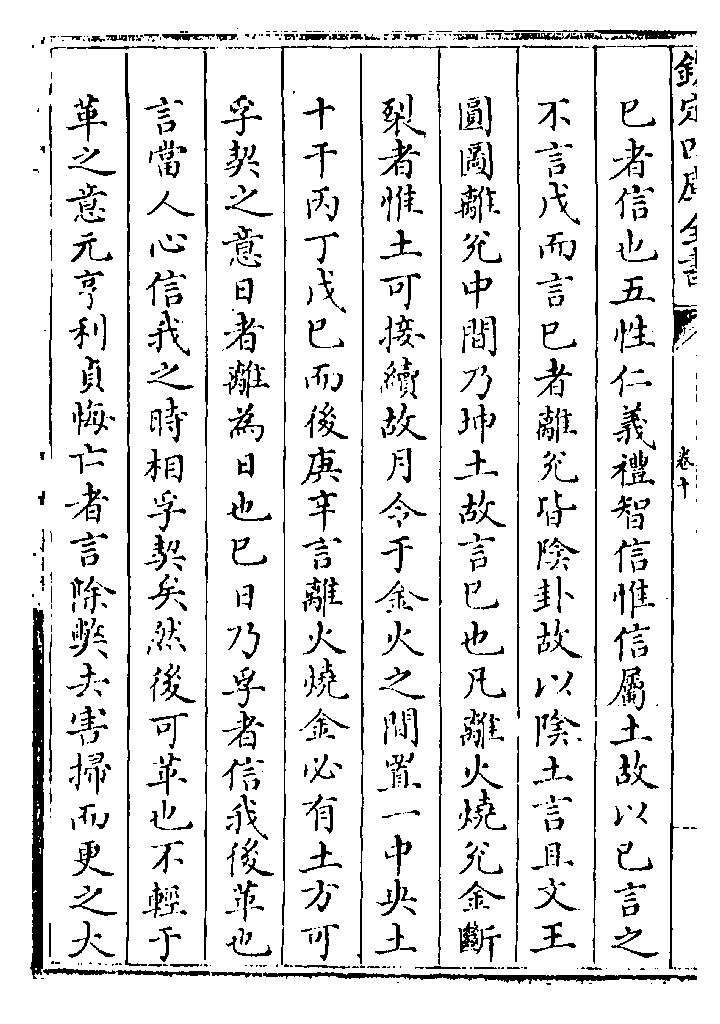 欽定四庫全書
卷十
已者信也五性仁義禮智信惟信屬土故以已言之
不言戊而言已者離兊皆隂卦故以隂土言且文王
圓圖離兊中間乃坤土故言巳也凡離火燒兊金斷
裂者惟土可接續故月令于金火之間置一中央土
十干丙丁戊巳而後庚辛言離火燒金必有土方可
孚契之意日者離為日也巳日乃孚者信我後革也
言當人心信我之時相孚契矣然後可革也不輕于
革之意元亨利貞悔亡者言除弊去害掃而更之大